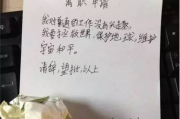 离职申请
我对普通的工作没有兴趣。
我要去拯救世界,保护地球,维护
宇宙和平。
请辞,望批,以上